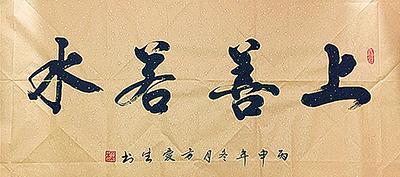 上善若水
丙申年冬月方爱生书